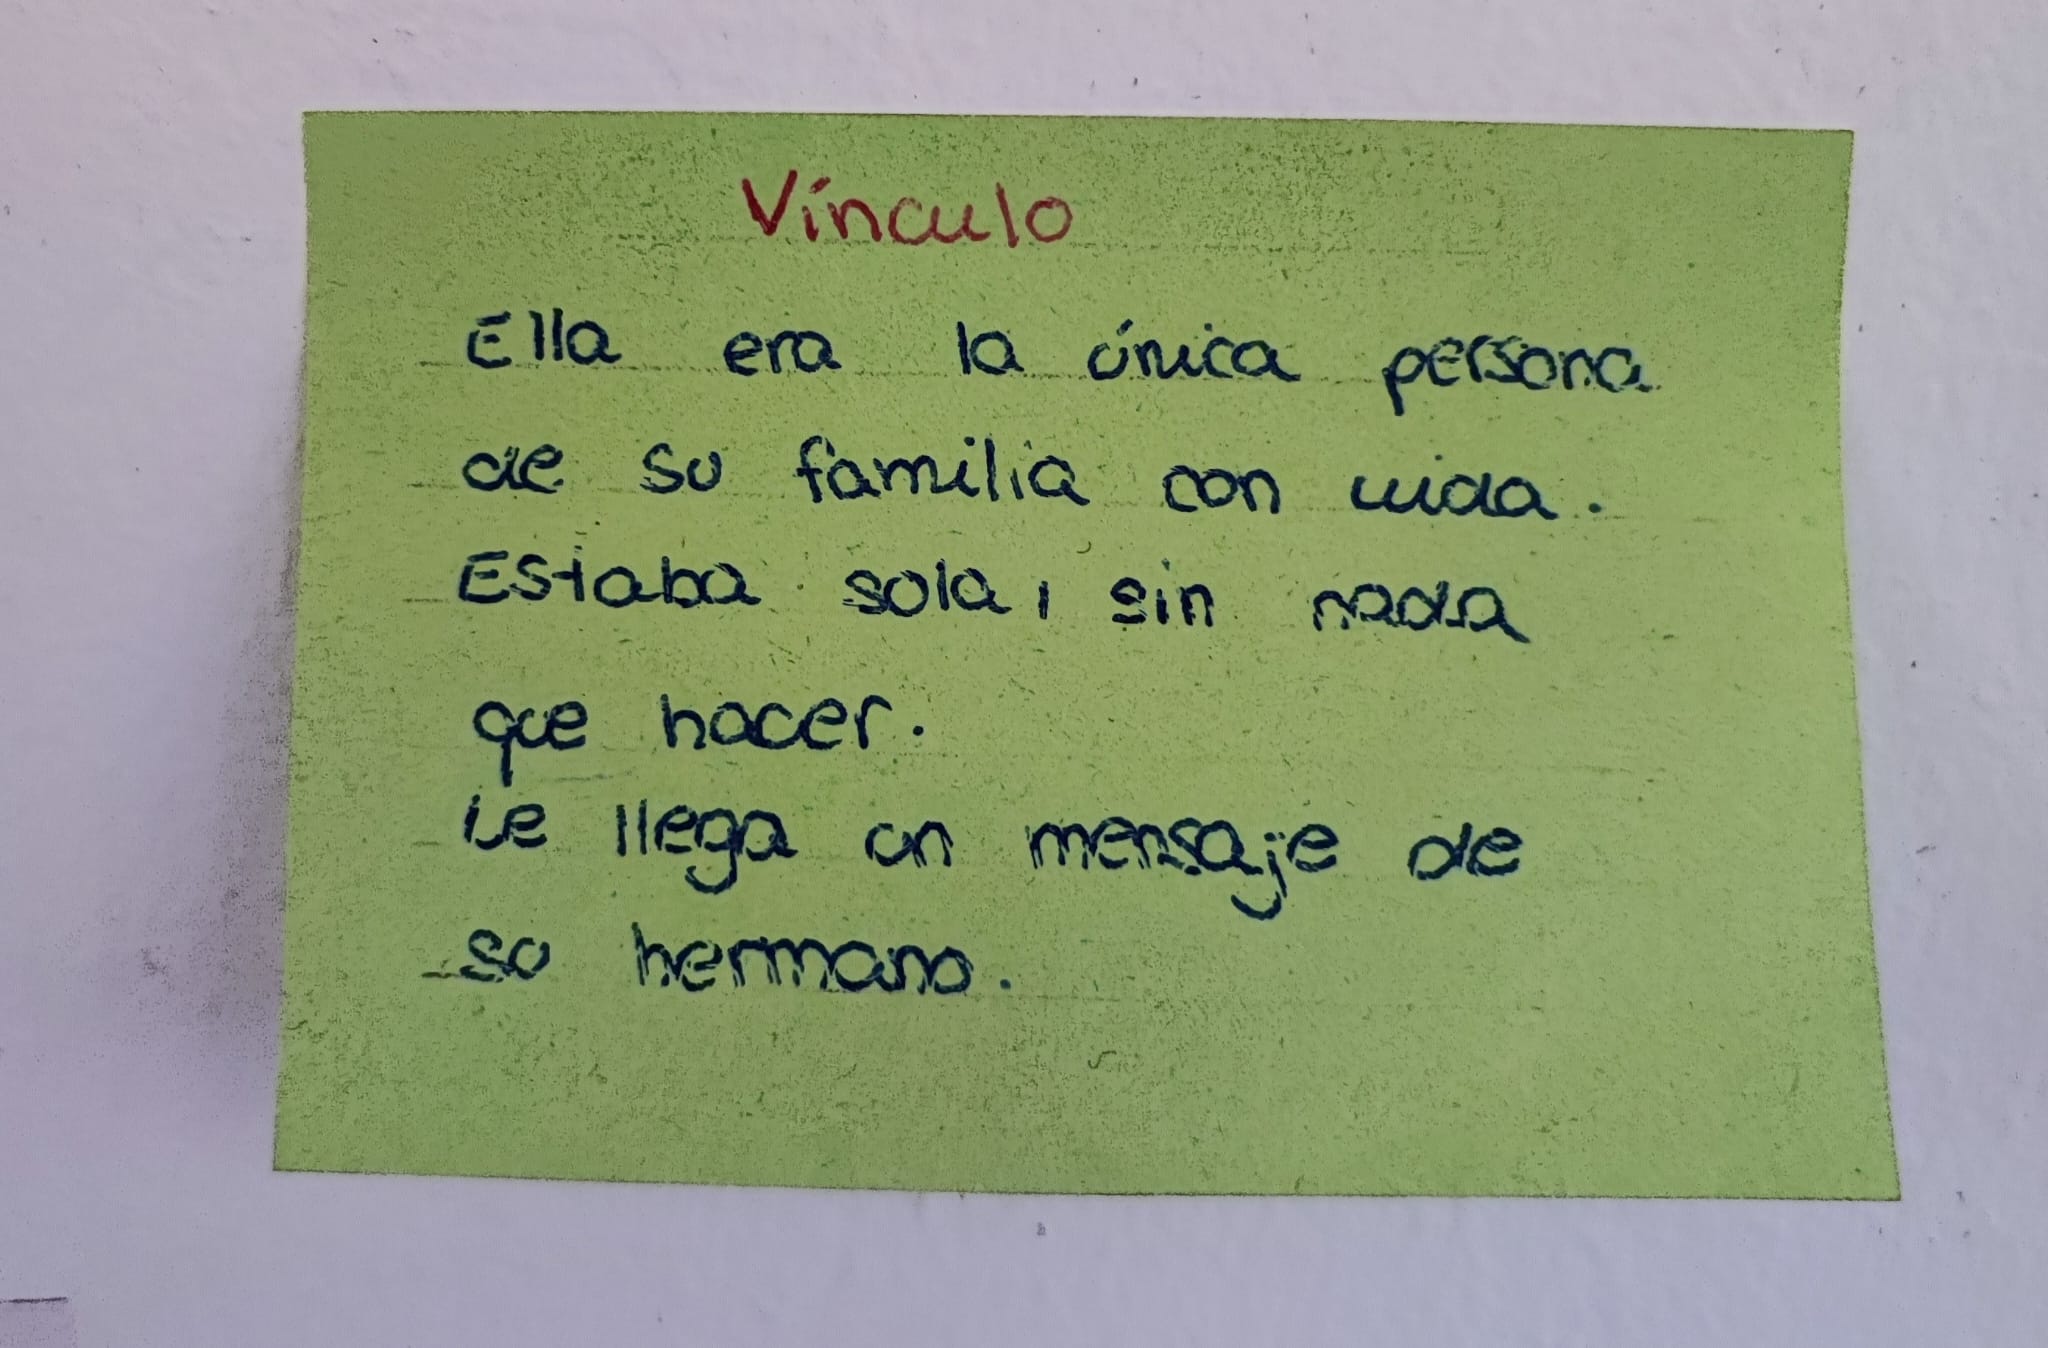 Vínculo
Ella era la única persona
de su familia con vida.
Estaba sola, sin nada
que hacer.
Le llega un mensaje de
su hermano.